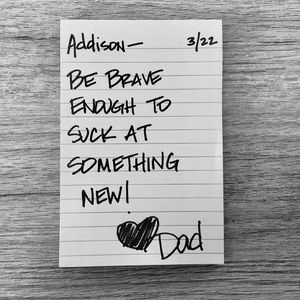 Addison— 3/22
BE BRAVE
ENOUGH TO
SUCK AT
SOMETHING
NEW!
Dad